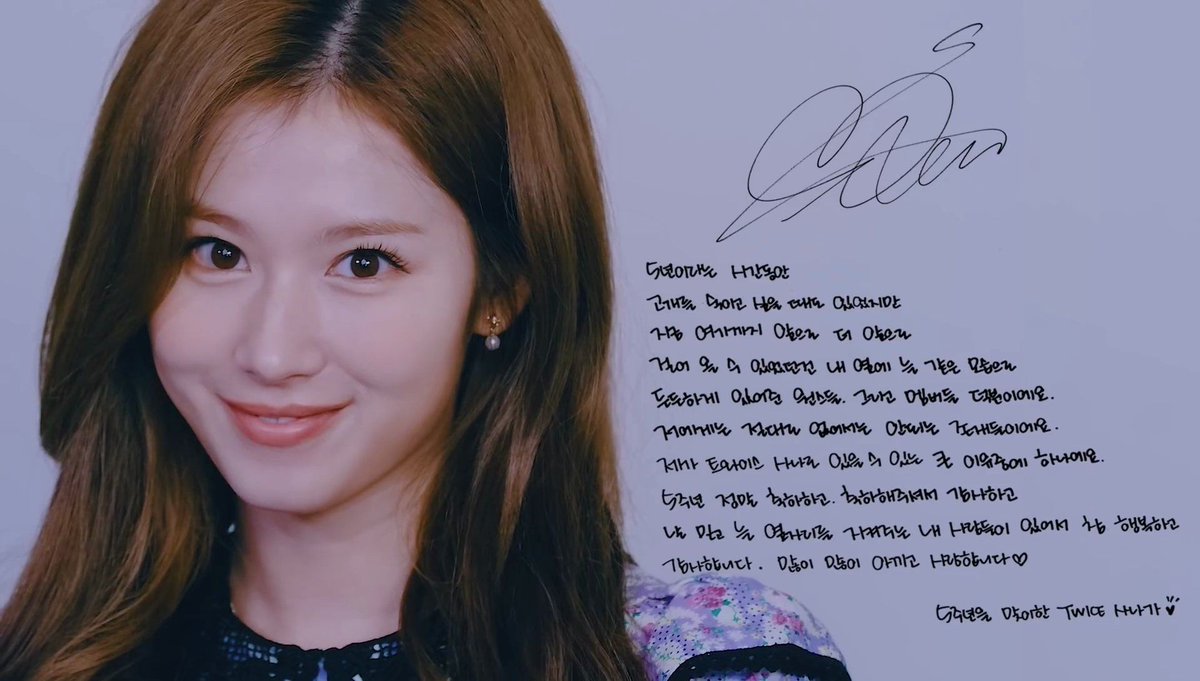 5년이라는 시간동안
고개를 숙이고 싶을 때도 있었지만
지금 여기까지 앞으로 더 앞으로
걸어 올 수 있었던건 내 옆에 늘 같은 모습으로
든든하게 있어준 원스들. 그리고 멤버들 덕분이에요.
저에게는 절대로 없어서는 안되는 존재들이에요.
제가 트와이스 사나로 있을 수 있는 큰 이유중에 하나에요.
5주년 정말 축하하고. 축하해주셔서 감사하고
날 믿고 늘 옆자리를 지켜주는 내 사람들이 있어서 참 행복하고
감사합니다. 많이 많이 아끼고 사랑합니다♡
5주년을 맞이한 TWICE 사나가